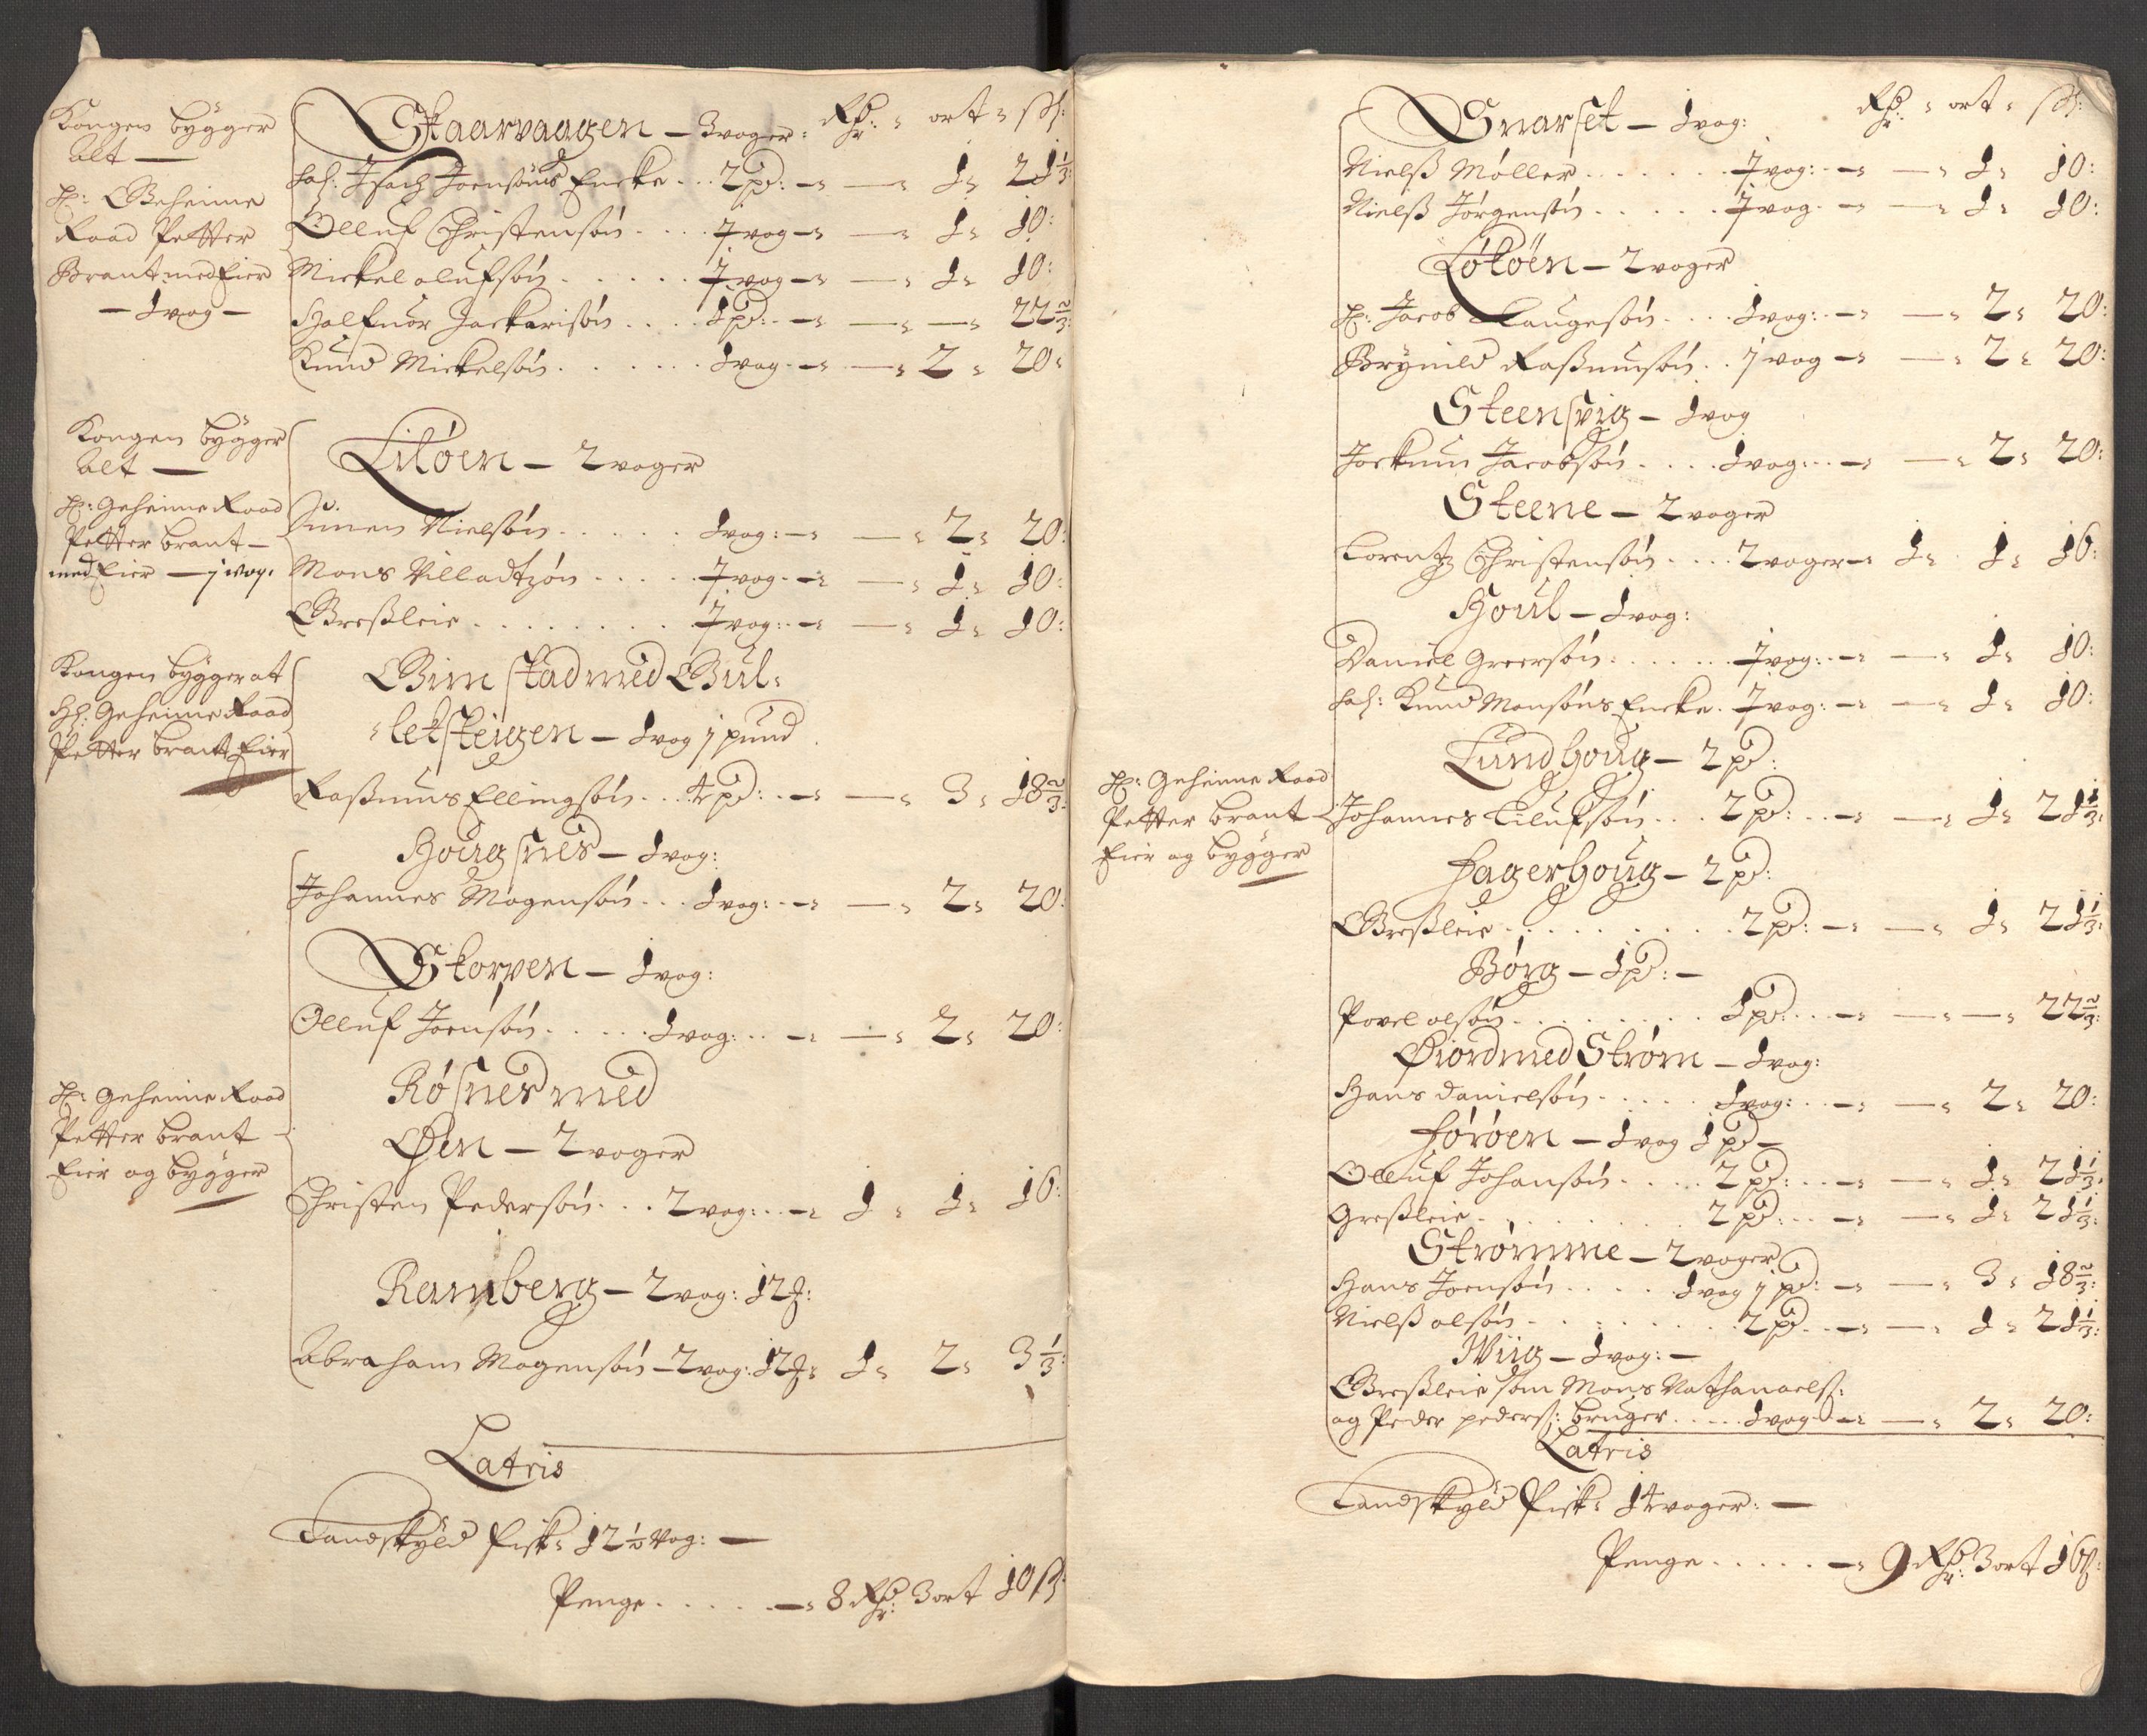 Kongen bygger
alt —
H: Geheime
Raad Petter
Brant med Eier
— 1 vog —
Skaarvaagen — 3 voger: Rdr: ort sk:
Sal: Isach Joensøns Encke . . 2 pd: — — 1 21 1/3
Olluf Christensøn . . . . ½ vog — — 1 10:
Mickel olufsøn . . . . . . ½ vog — — 1 10:
Halfuor Jackarisøn . . . . 1 pd: — — — 22 2/3
Knud Mickelsøn . . . . . . 1 vog — — 2 20
Kongen bygger
alt —
H: Geheime Raad
Petter brant —
med Eier — ½ vog:
Liløen — 2 voger
Simen Nielsøn . . . . . 1 vog: — — 2 20:
Mons Villadtzøn . . . . . ½ vog — — 1 10:
Gresleie . . . . . . . . ½ vog: — — 1 10:
Kongen bygger at
H: Geheime Raad
Petter brant Eier
Gimstad med Gul=
=letsteigen — 1 vog 1 pund
Rasmus Ellingsøn . . 4 pd: — — 3 18 2/3
Hougsnes — 1 vog:
Johannes Mogensøn . . . 1 vog: — — 2 20:
Skorpen — 1 vog:
Olluf Joensøn . . . . . 1 vog: — — 2 20:
H: Geheime Raad
Petter brant
Eier og bygger
Røsnes med
Øen — 2 voger
Christen Pedersøn . . . 2 vog: — 1 1 16:
Ramberg — 2 vog: 12 #:
Abraham Mogensøn — 2 vog: 12 #: 1 2 3 1/3:
Latris
Landskyld Fisk: 12 ½ Vog: —
Penge . . . . . — 8 Rdr: 3 ort 10 sk
Snarset — 1 vog: Rdr: ort sk:
Niels Møller . . . . . . ½ vog: — — 1 10:
Niels Jørgensøn . . . . . ½ vog — — 1 10:
Løkøen — 2 voger
H: Jacob Laugesøn . . . . 1 vog: — — 2 20:
Brynild Rasmusøn . . 1 vog — — 2 20:
Steensvig — 1 vog
Jockum Jacobsøn . . . . 1 vog: — — 2 20:
Steene — 2 voger
Lorentz Christensøn . . . . 2 voger — 1 1 16:
Houl — 1 vog:
Daniel Greersøn . . . . . . ½ vog: — — 1 10:
Sal: Knud Monsøns Encke . ½ vog: — — 1 10:
H: Geheime Raad
Petter brant
Eier og bygger
Lundhoug — 2 pd:
Johannes Eilufsøn . . . 2 pd: — — 1 21 1/3:
Hagerhoug — 2 pd:
Gresleie . . . . . . . . 2 pd: — — 1 21 1/3:
Børg — 1 pd: —
Povel olsøn . . . . . . . 1 pd: — — — 22 2/3:
Øiord med Strøm — 1 vog:
Hans danielsøn . . . . . 1 vog: — — 2 20:
Førøen — 1 vog 1 pd —
Olluf Johansøn . . . . . 2 pd: — — 1 21 1/3:
Gresleie . . . . . . . . 2 pd: — — 1 21 1/3:
Strømme — 2 voger
Hans Joensøn . . . . 1 vog 1 pd: — — 3 18 2/3:
Niels olsøn . . . . . . . 2 pd — — 1 21 1/3:
Wiig — 1 vog: —
Gresleie som Mons Nathanaels:
og Peder peders: bruger . . . . 1 vog — — 2 20:
Latris
Landskyld Fisk: 14 voger: —
Penge . . . . . — 9 Rdr: 3 ort 16 sk: